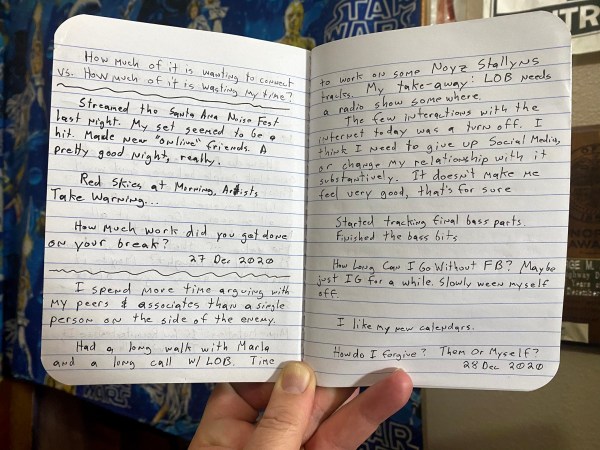 How Much of it is wanting to connect
vs. How much of it is wasting my time?
Streamed the Santa Ana Noise Fest
last night. My set seemed to be a
hit. Made new "online" friends. A
pretty good night, really.
Red Skies at Morning, Artists
Take Warning...
How much work did you get done
on your break?
27 Dec 2020
I spend more time arguing with
my peers & associates than a single
person on the side of the enemy.
Had a long walk with Marla
and a long call w/ LOB. Time
to work on some Noyz Stallyns
tracks. My take-away: LOB needs
a radio show somewhere.
The few interactions with the
internet today was a turn off. I
think I need to give up Social Media,
or change my relationship with it
substantively. It doesn't make me
feel very good, that's for sure
Started tracking final bass parts.
Finished the bass bits
How Long Can I Go Without FB? Maybe
just IG for a while. Slowly ween myself
off.
I like my new calendars.
How do I forgive? Them Or Myself?
28 Dec 2020
STAR
WAR
STAR